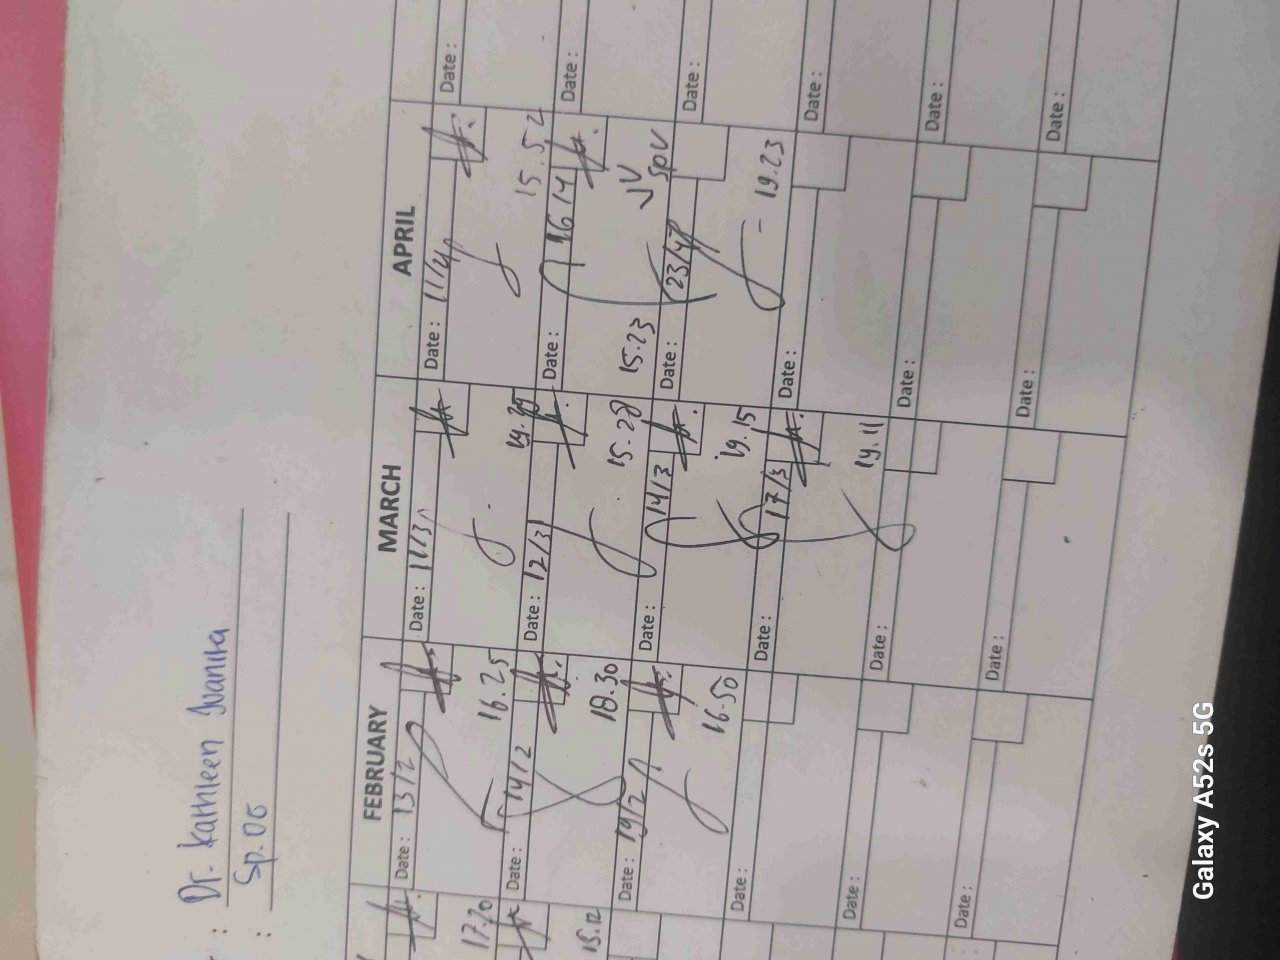 : Dr. Kathleen Juanita
: Sp. OG
FEBRUARY MARCH APRIL
Date : 13/2 Date : 11/3 Date : 11/4 Date :
17.20 16.25 15.52
Date : 14/2 Date : 12/3 Date : 16/4 Date :
15.12 18.30 15.28 15.23 JV SPV
Date : 19/2 Date : 14/3 Date : 23/4 Date :
16.50 19.15 19.23
Date : Date : 17/3 Date : Date :
19.11
Date : Date : Date : Date :
Date : Date : Date : Date :
Galaxy A52s 5G